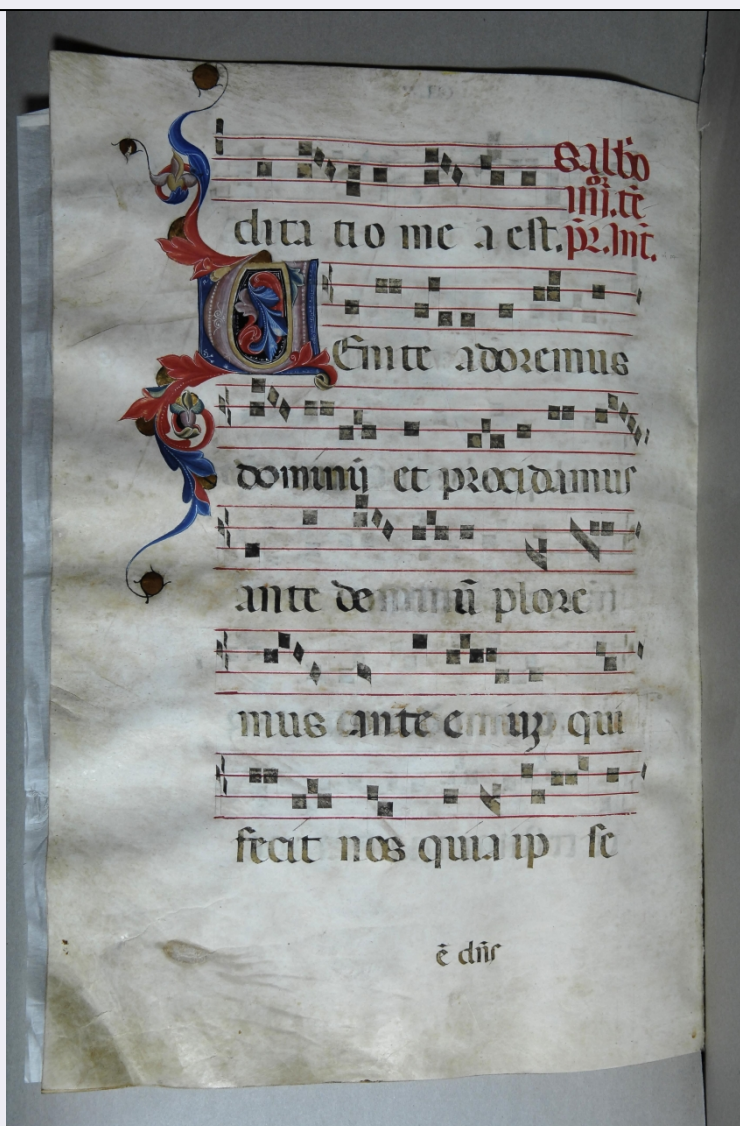 Sabbo
dita tio me a est.
iiij.or te
pr. Int.
VEnite adoremus
dominū et procidamus
ante dominū plore
mus ante eum qui
fecit nos quia ip se
ē dñs